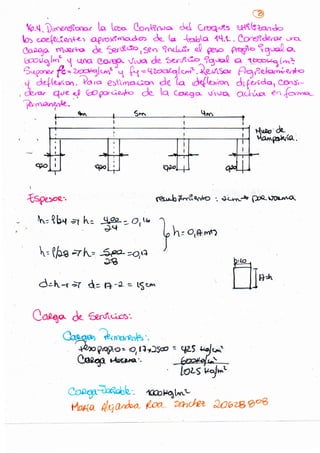 ②
10.4. Dimensionar la losa Continua del Croquis utilizando
los coeficientes aproximados de la tabla 14.1. Considerar una
carga muerta de Servicio, sen incluir el peso propio igual a
600 kg/m² y una carga viva de Servicio igual a 1000 kg/m²
Suponer f'c=200kg/cm² y fy=4200kg/cm². Revisar Flexión
y deflexión. Para estimación de la deflexión diferida, Cons-
derar que el 60 por ciento de la carga viva actua en forma
permanente.
4m 5m 4m
Muro de
Mampostería.
Espesor:
recubrimiento : 2cm → por norma
h=
h= 0,17m
d=h-r ⇒ d= 17-2 = 15cm
b:100
17=h
Carga de Servicios:
Cargas Permanente:
Peso propio = 0,17x2500 = 425 kg/m²
Carga Muerta: 600kg/m²
1025 kg/m²
Carga Variable: 1000kg/m²
Maria Alejandra Roa Sanchez 20628808